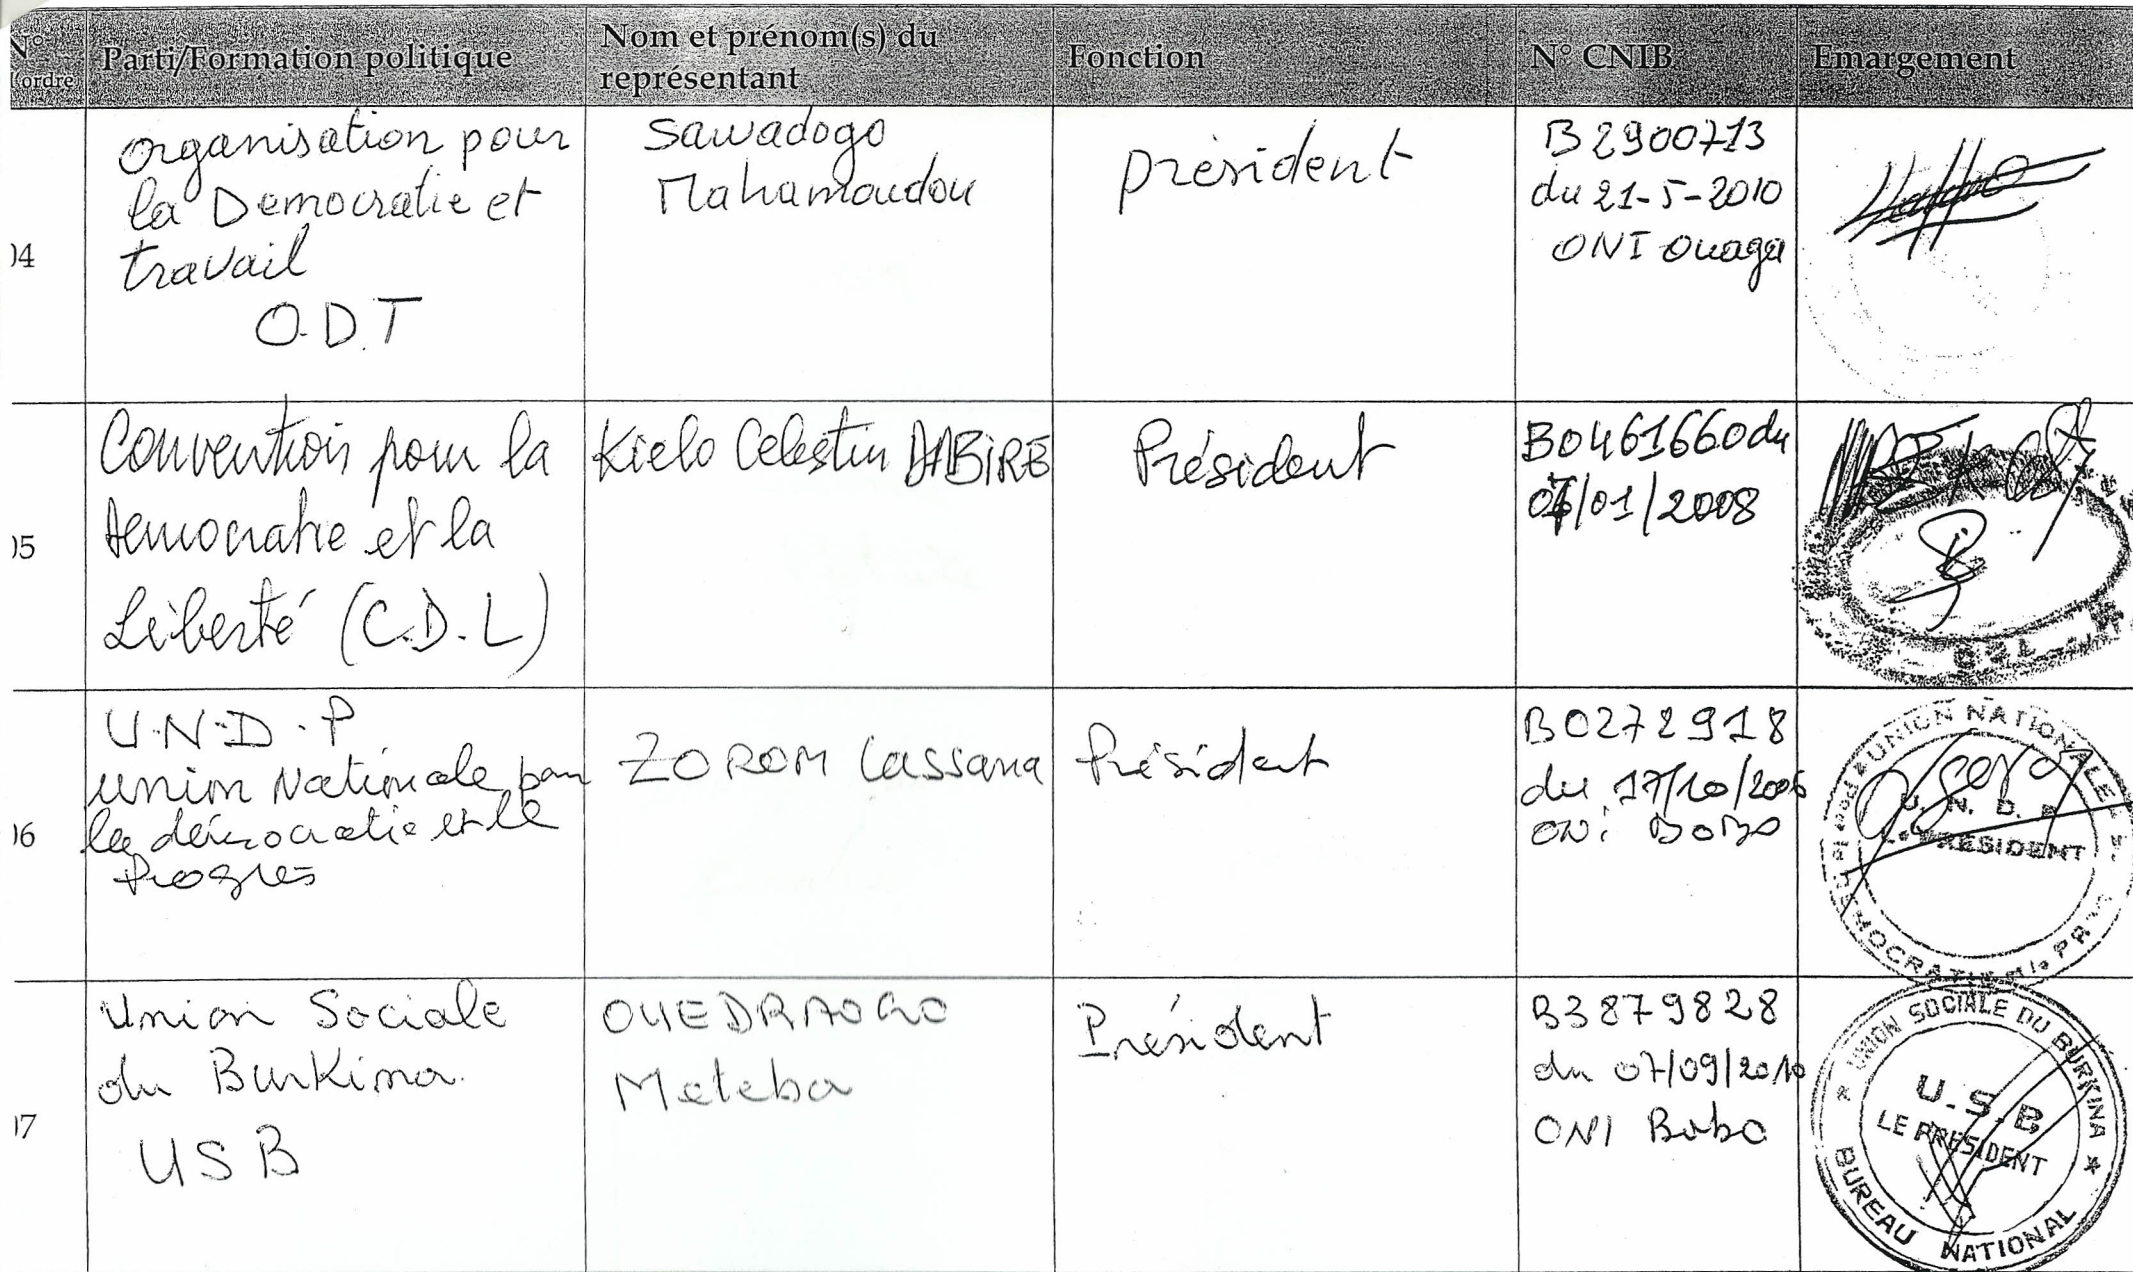 N° Parti/Formation politique Nom et prénom(s) du représentant Fonction N° CNIB Emargement
ordre
04
Organisation pour
la Democratie et
travail
O.D.T
Sawadogo
Mahamoudou
président
B2900713
du 21-5-2010
ONI Ouaga
05
Convention pour la
democratie et la
Liberté (C.D.L)
Kielo Celestin DABIRE
Président
B0461660 du
/01/2008
CDL
06
U.N.D.P
Union Nationale pour
la démocratie et le
Progrès
ZOROM Lassana
Président
B0272918
du 17/10/2006
ONi BOBO
UNION NATIONALE pour la DEMOCRATIE et le
U. N. D. P
Le PRESIDENT
07
Union Sociale
du Burkina
USB
OUEDRAOGO
Meteba
Président
B3879828
du 07/09/2010
ONI Bobo
UNION SOCIALE DU BURKINA
U.S.B
LE PRESIDENT
BUREAU NATIONAL